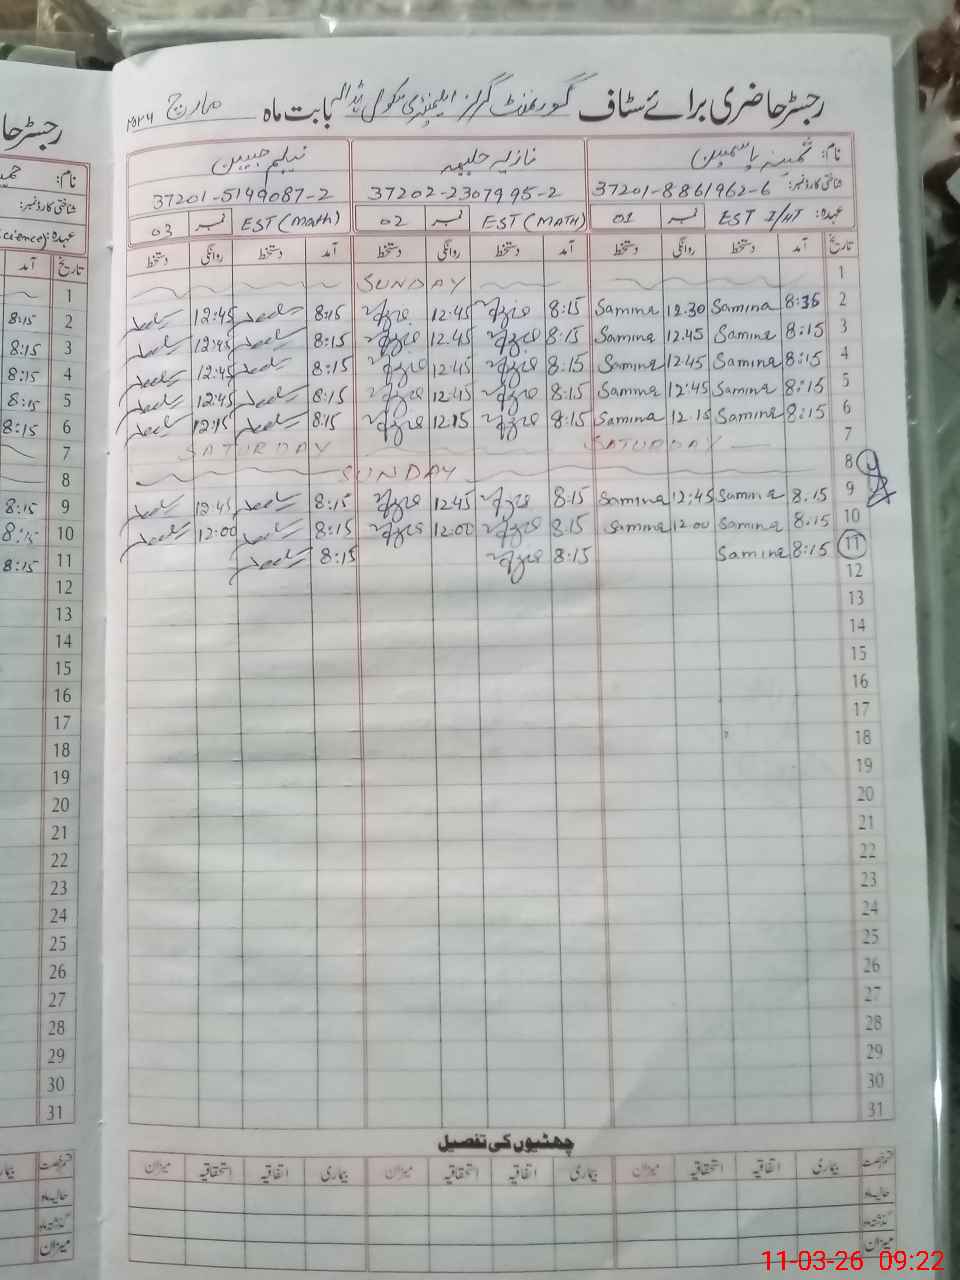 رجسٹر حاضری برائے سٹاف گورنمنٹ گرلز ایلیمنٹری سکول پنڈالہ بابت ماہ مارچ ۲۰۲۶
نام: ثمینہ یاسمین نازیہ حلیمہ نیلم جبین
شناختی کارڈ نمبر: 37201-8861962-6 37202-2307995-2 37201-5149087-2
عہدہ: EST I/HT نمبر 01 EST (MATH) نمبر 02 EST (Math) نمبر 03
تاریخ آمد دستخط روانگی دستخط آمد دستخط روانگی دستخط آمد دستخط روانگی دستخط
1 SUNDAY
2 8:35 Samina 12:30 Samina 8:15 12:45 8:15 12:45
3 8:15 Samina 12:45 Samina 8:15 12:45 8:15 12:45
4 8:15 Samina 12:45 Samina 8:15 12:45 8:15 12:45
5 8:15 Samina 12:45 Samina 8:15 12:45 8:15 12:45
6 8:15 Samina 12:15 Samina 8:15 12:15 8:15 12:15
7 SATURDAY SATURDAY
8 SUNDAY
9 8:15 Samina 12:45 Samina 8:15 12:45 8:15 12:45
10 8:15 Samina 12:00 Samina 8:15 12:00 8:15 12:00
11 8:15 Samina 8:15 8:15
12
13
14
15
16
17
18
19
20
21
22
23
24
25
26
27
28
29
30
31
چھٹیوں کی تفصیل
قسم رخصت بیماری اتفاقیہ استحقاقیہ میزان بیماری اتفاقیہ استحقاقیہ میزان بیماری اتفاقیہ استحقاقیہ میزان
حالیہ ماہ
گذشتہ ماہ
میزان
رجسٹر حا
نام:
شناختی کارڈ نمبر:
عہدہ: Science)
تاریخ آمد
1
2 8:15
3 8:15
4 8:15
5 8:15
6 8:15
7
8
9 8:15
10 8:15
11 8:15
12
13
14
15
16
17
18
19
20
21
22
23
24
25
26
27
28
29
30
31
قسم رخصت بیماری
حالیہ ماہ
گذشتہ ماہ
میزان
11-03-26 09:22